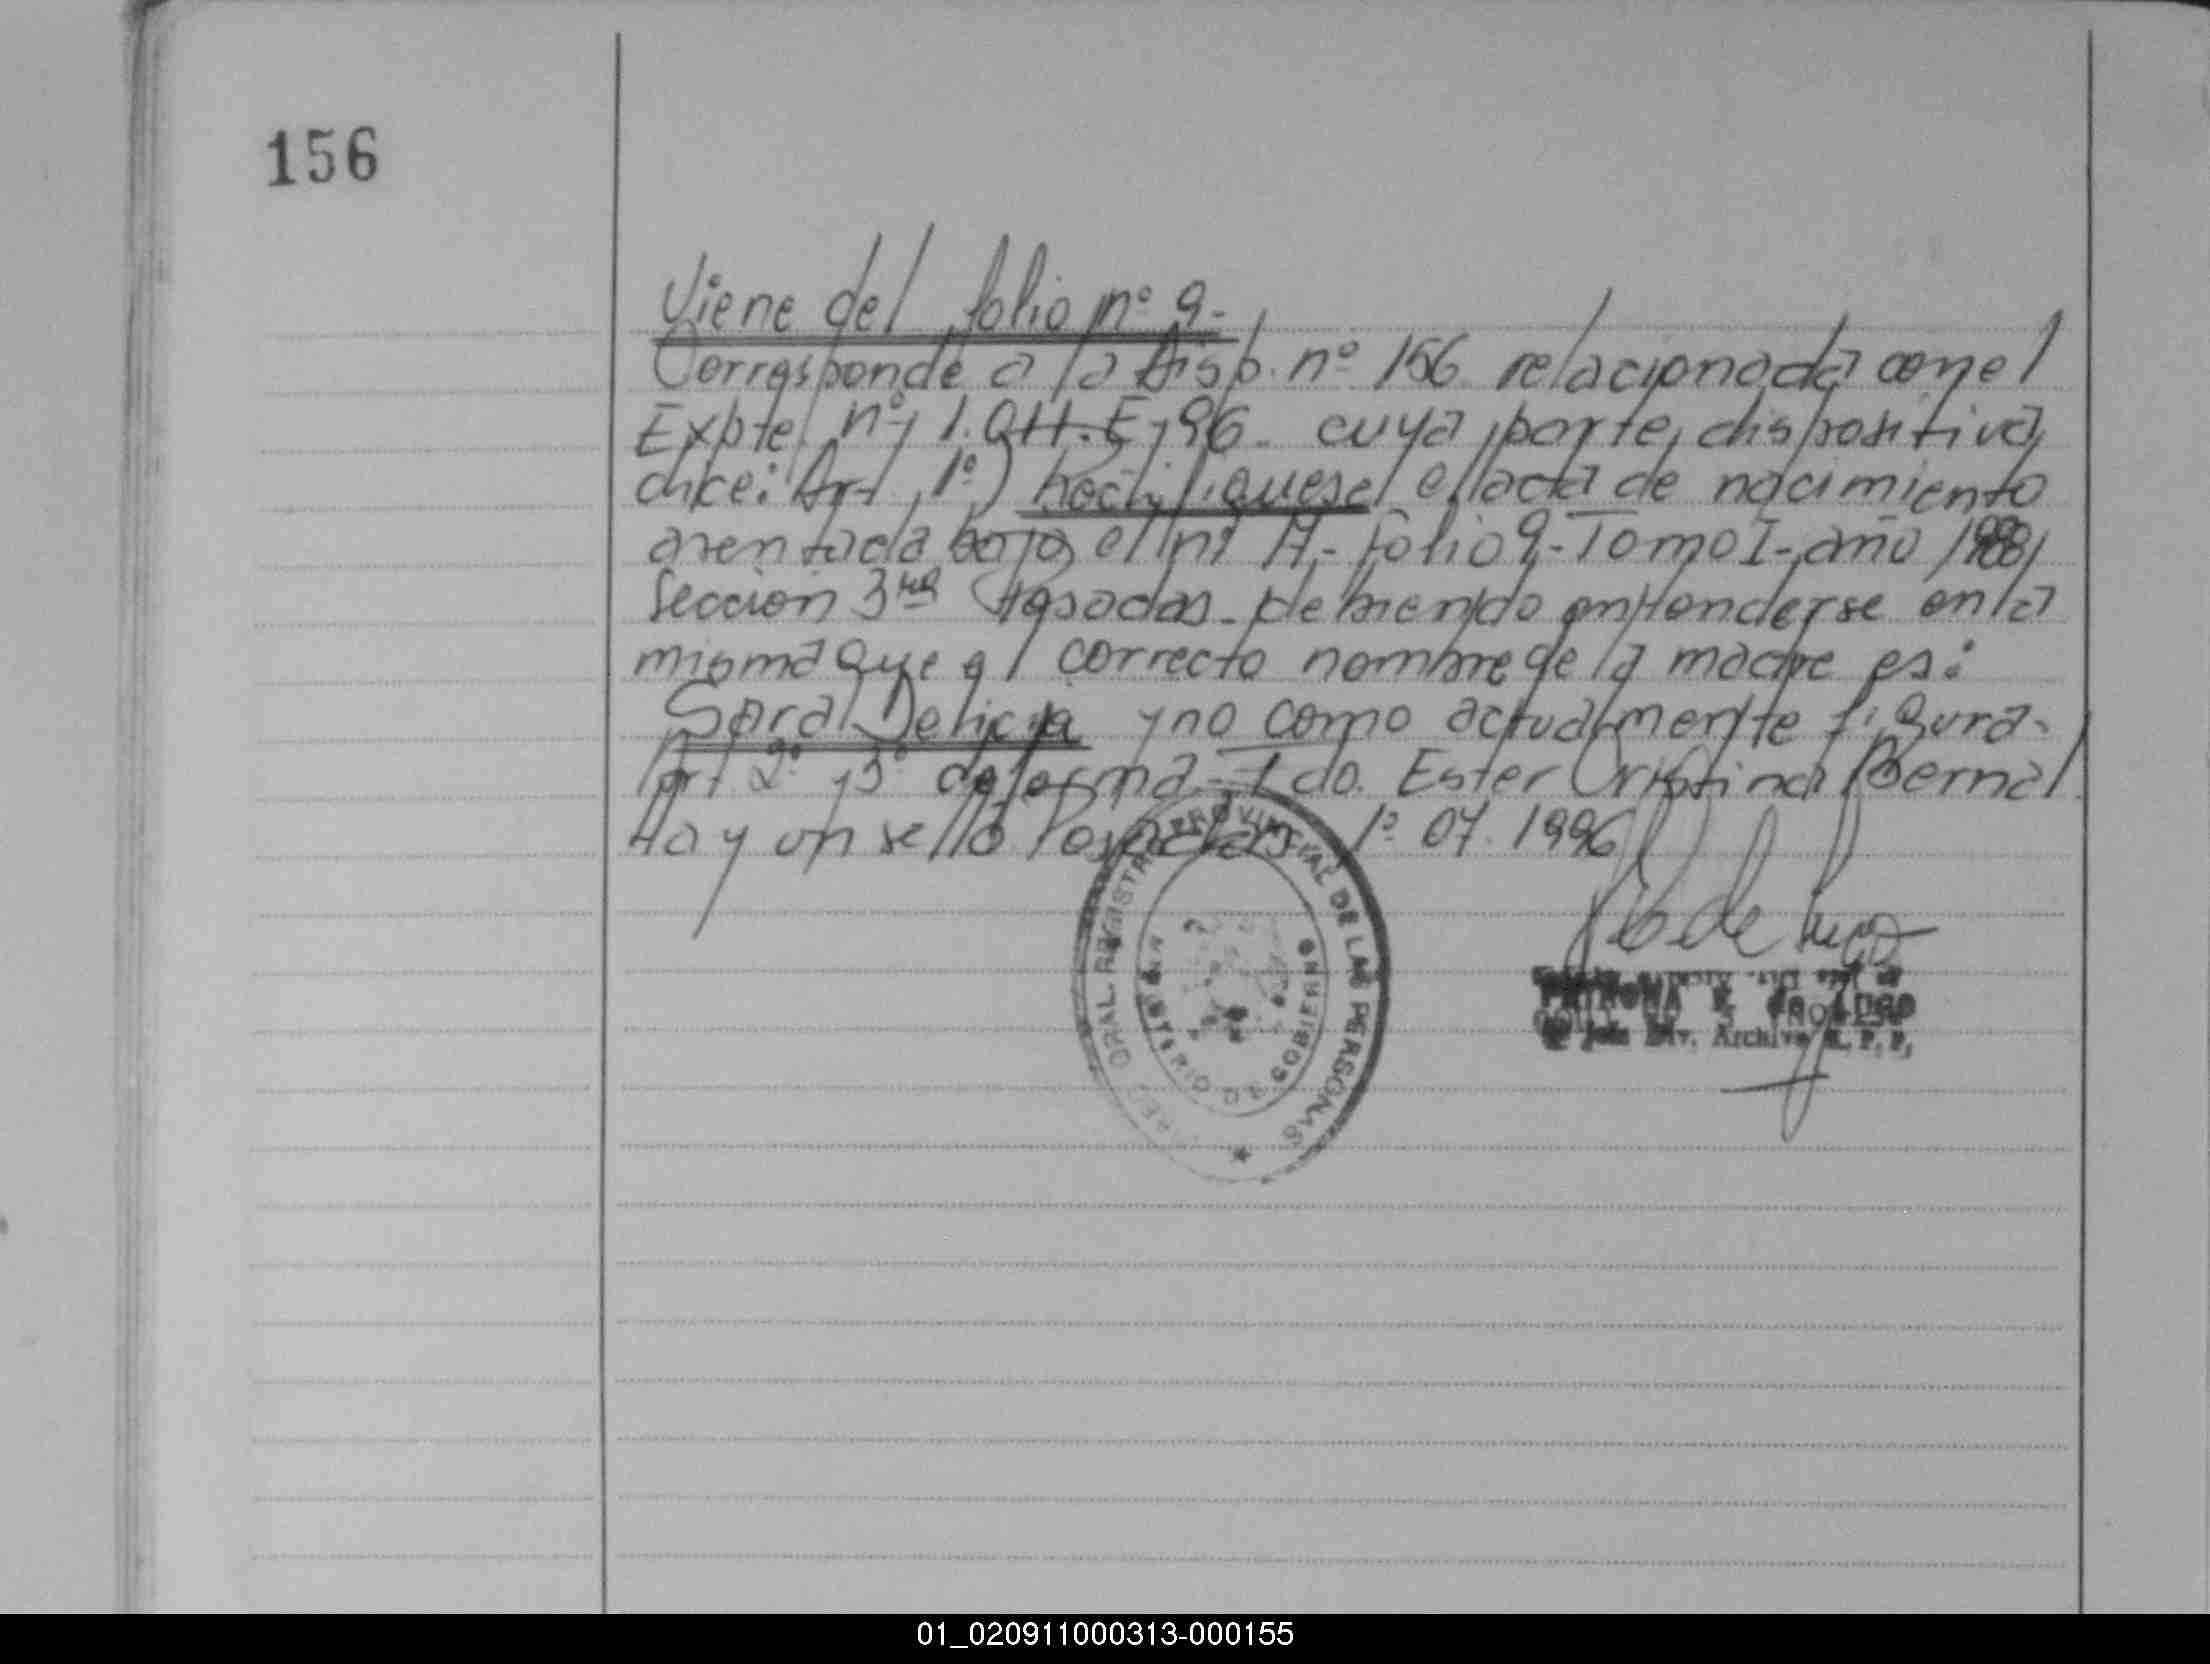 156
Viene del folio nº 9.-
Corresponde a la Disp. nº 156 relacionada con el
Expte nº 1. E-96. cuya parte dispositiva
dice: Art 1º) Rectifiquese el acta de nacimiento
asentada bajo el nº folio 9- Tomo I- año 1988
Sección 3ra Posadas- debiendo entenderse en la
misma que el correcto nombre de la madre es:
Sara Delicia y no como actualmente figura-
Art. 2º y 3º de forma- Fdo. Ester Cristina Bernal
Hay un sello Posadas 1º 07. 1996
REGISTRO PROVINCIAL DE LAS PERSONAS
MINISTERIO DE GOBIERNO
de Lugo
RAMONA E. de Lugo
Jefe Div. Archivo R. P. P.
01_020911000313-000155